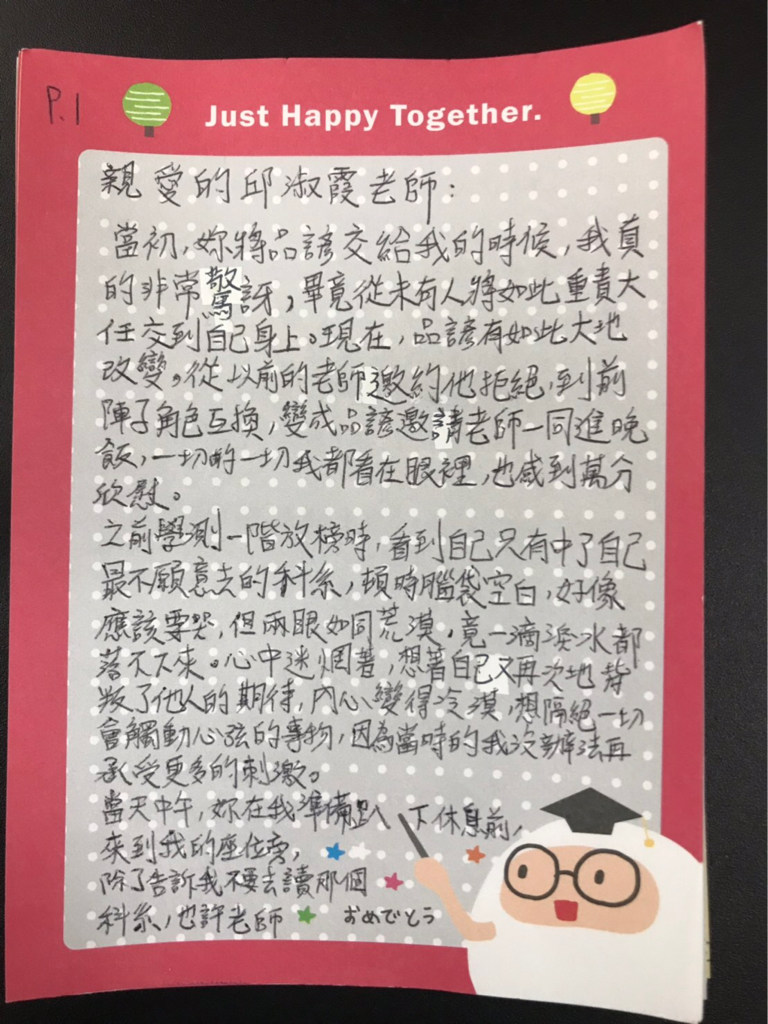 P.1
Just Happy Together.
親愛的邱淑霞老師：
當初，妳將品諺交給我的時候，我真
的非常驚訝，畢竟從未有人將如此重責大
任交到自己身上。現在，品諺有如此大地
改變。從以前的老師邀約他拒絕，到前
陣子角色互換，變成品諺邀請老師一同進晚
飯，一切的一切我都看在眼裡，也感到萬分
欣慰。
之前學測一階放榜時，看到自己只有中了自己
最不願意去的科系，頓時腦袋空白，好像
應該要哭，但兩眼如同荒漠，竟一滴淚水都
落不下來。心中迷惘著，想著自己又再次地背
叛了他人的期待，內心變得冷漠，想隔絕一切
會觸動心弦的事物，因為當時的我沒辦法再
承受更多的刺激。
當天中午，妳在我準備趴下休息前，
來到我的座位旁，
除了告訴我不要去讀那個
科系，也許老師
おめでとう